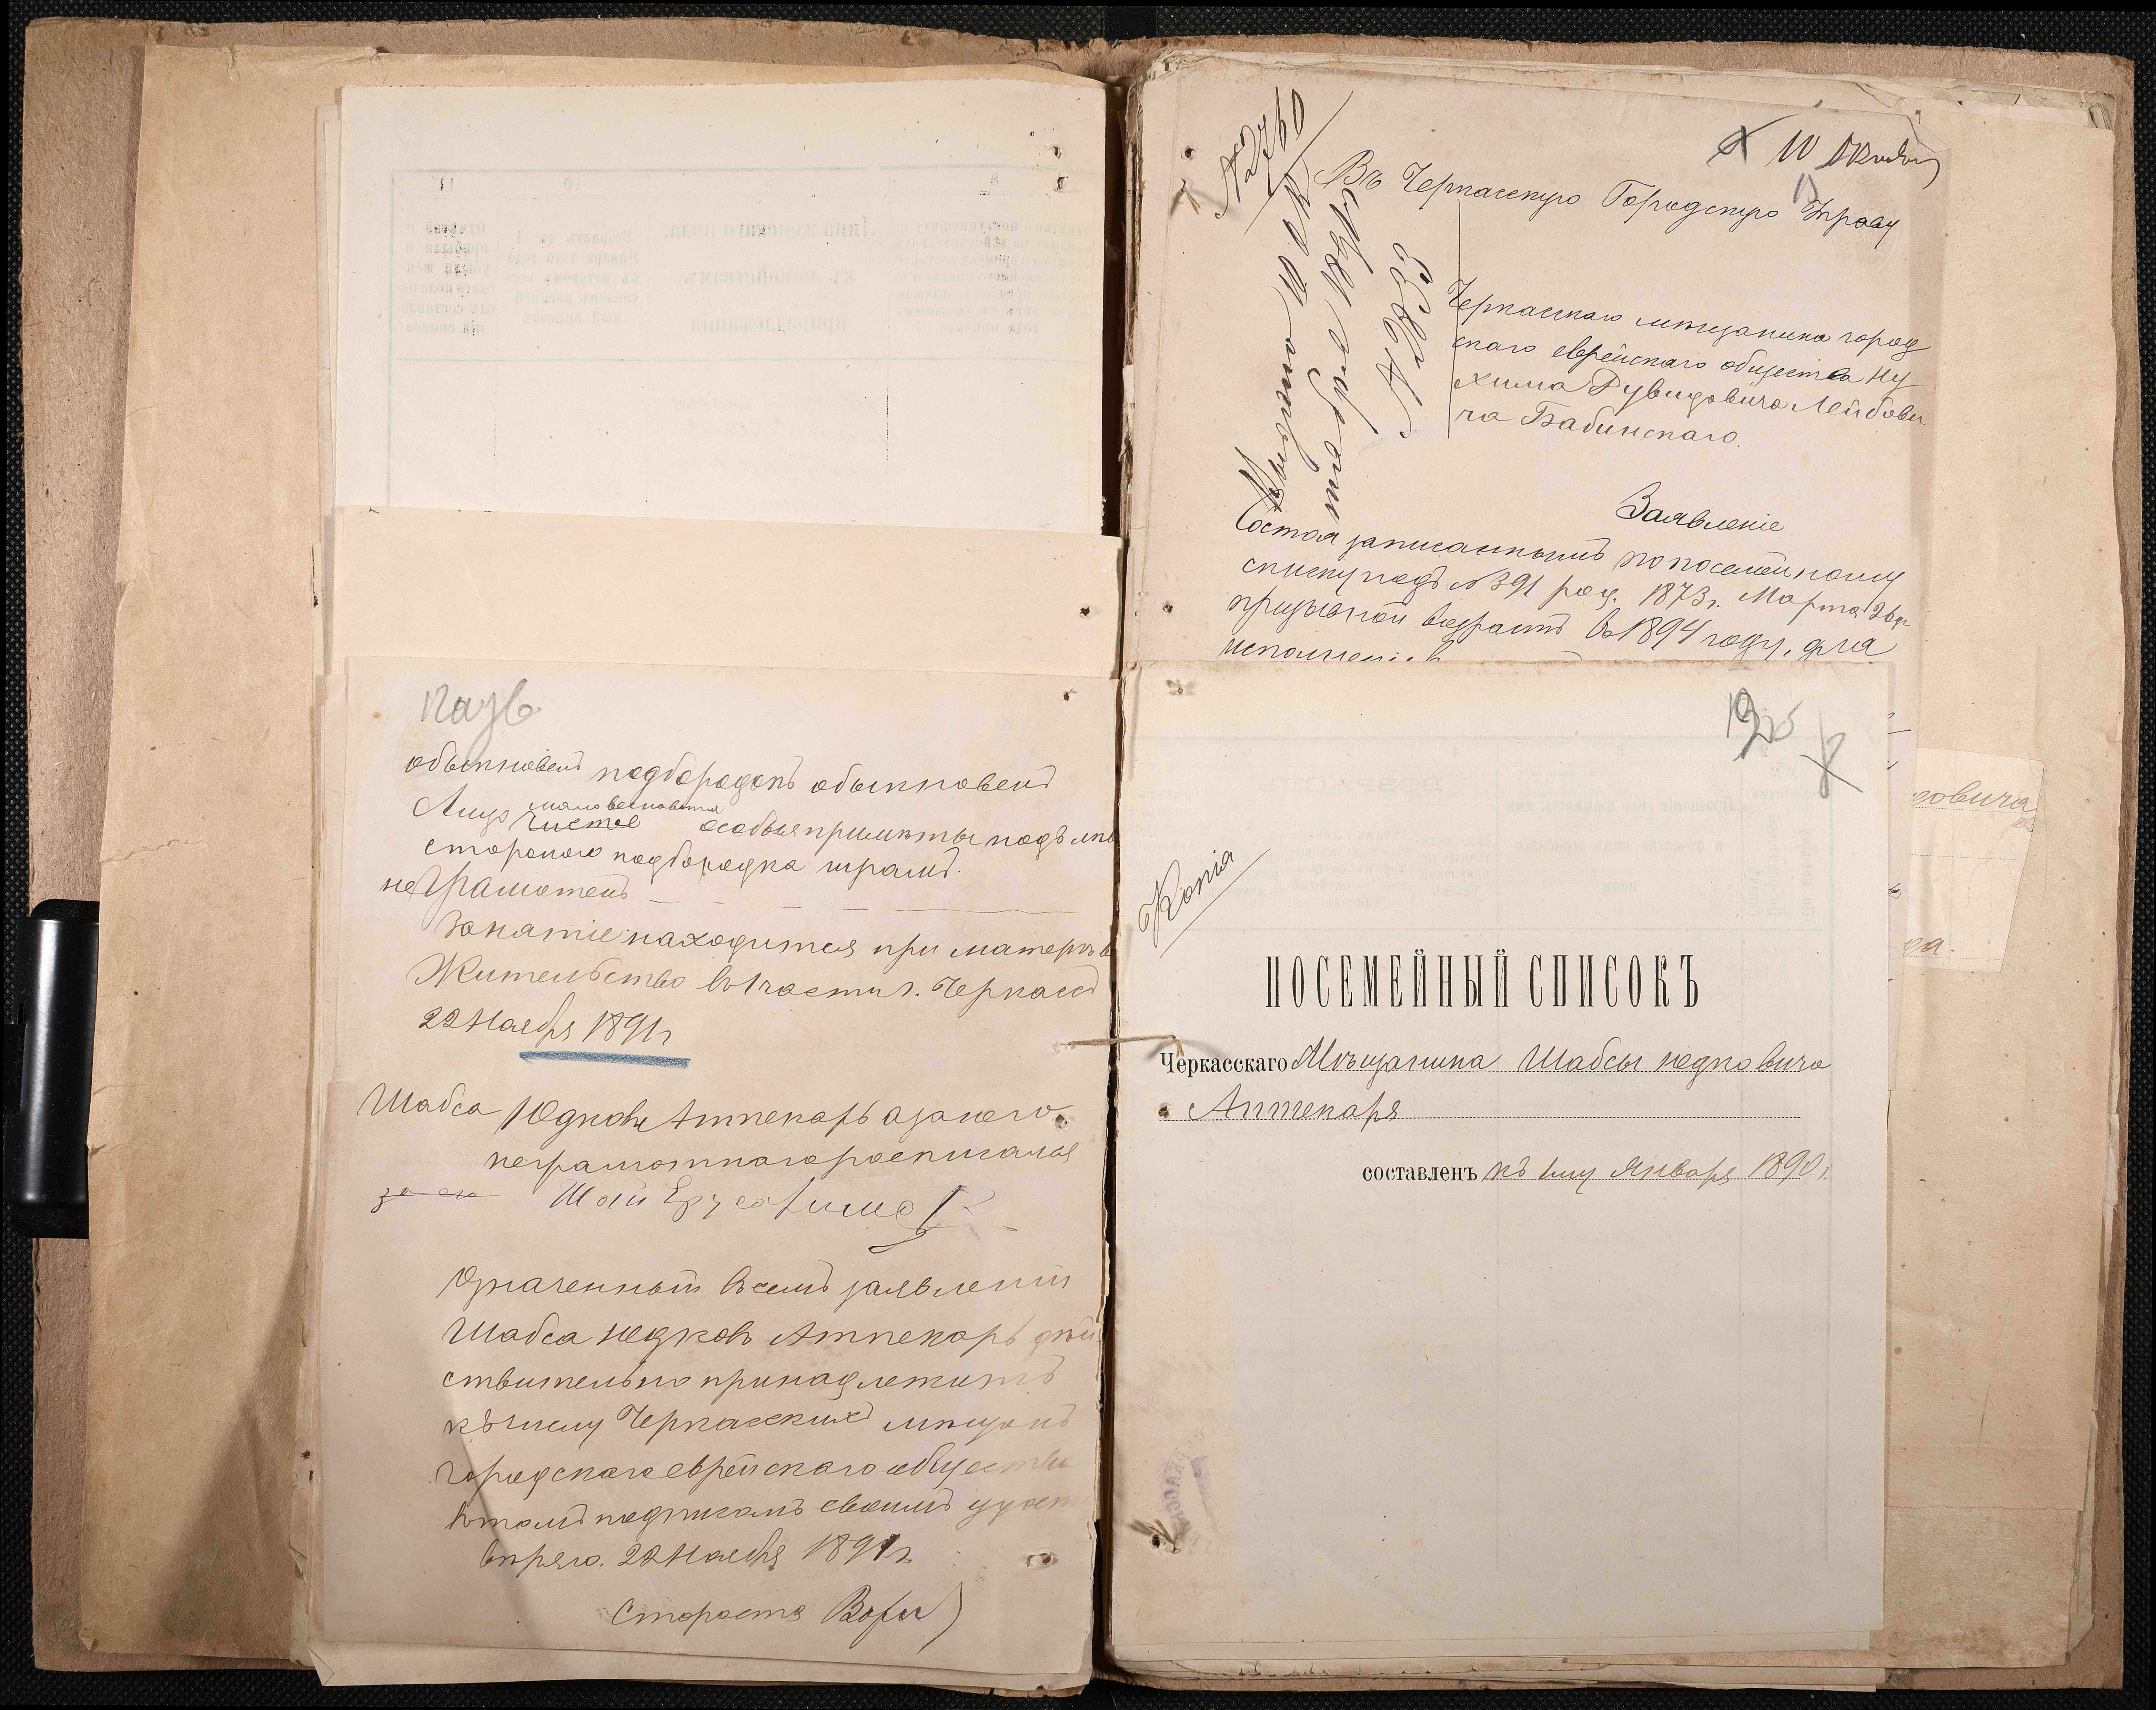 казв
обыкновенъ подбородокъ обыкновенъ
маловесноватое
Лицо чистое особыя примѣты подъ лѣв
стороною подбородка шрамъ.
неграмотенъ
Занятіе находится при матери
Жительство въ 1 части г. Черкассъ
22 Ноября 1891 г
Шабса Юдковъ Аптекарь а за него
неграмотнаго росписался
за его Шай
Означенный въ семъ заявленіи
Шабса Юдковъ Аптекарь дѣй
ствительно принадлежитъ
къ числу Черкасскихъ мѣщанъ
городскаго еврейскаго общества
въ томъ подписомъ своимъ удосто
вѣряю. 22 Ноября 1891 г
Староста
№ 2760
10
Въ Черкасскую Городскую Управу
№ 2833
Черкасскаго мѣщанина город
скаго еврейскаго общества Ну
хима Рувидовича Лейбови
ча Бабинскаго.
Заявленіе
Состоя записаннымъ по посемейному
списку подъ № 391 род. 1873 г. Марта 26
призывной возрастъ въ 1894 году, для
195
Копія
ПОСЕМЕЙНЫЙ СПИСОКЪ
Черкасскаго Мѣщанина Шабсы Юдковича
Аптекаря
составленъ къ 1му Января 1890 г.
овича